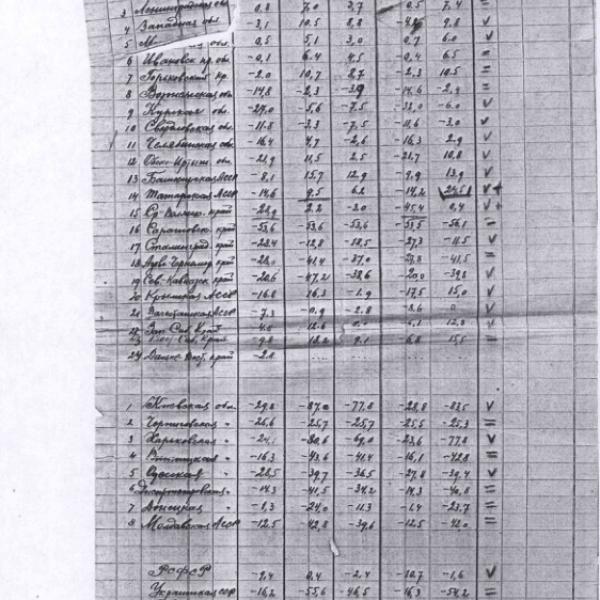 3 Ленинградская обл. 0,8 7,0 3,7 0,5 7,4 =
4 Западная обл. -3,1 10,5 8,8 9,8 v
5 обл. 0,5 5,1 3,0 0,7 6,0 v
6 Ивановск. пр. обл. -0,1 6,4 4,5 0,4 6,5 =
7 Горьковский кр. -2,0 10,7 8,7 -2,3 10,5 =
8 обл. -14,8 -2,3 -3,9 -14,6 -2,9 =
9 Курская обл. -24,0 -5,6 -7,5 -6,0 v
10 Свердловская обл. -11,8 -3,3 -7,5 -11,6 -3,0 v
11 Челябинская обл. -16,4 4,7 -2,6 -16,3 2,9 v
12 Обско-Иртыш. обл. -21,9 11,5 2,5 -21,7 10,8 v
13 Башкирская АССР -8,1 15,7 12,9 -9,9 13,9 v
14 Татарская АССР -14,6 9,5 6,2 -14,2 v +
15 Ср-Волжск. край 2,2 -3,0 -45,4 0,4 v +
16 Саратовск. край -53,6 -53,6 -53,6 -53,5 -56,1 =
17 Сталинград. край -28,4 -12,8 -18,5 -27,3 -11,5 v
18 Азово-Черномор. край -41,4 -37,0 -41,5 =
19 Сев-Кавказск. край -20,6 -47,2 -38,6 -20,0 -39,8 v
20 Крымская АССР -16,8 16,3 -1,9 -17,5 15,0 v
21 Дагестанская АССР -7,3 -0,9 -2,8 -8,6 v
22 Зап. Сиб. край 12,6 v
23 Вост. Сиб. край 18,2 9,1 15,5 =
24 Дальне-Вост. край -2,0
1 Киевская обл. -29,8 -87,0 -77,8 -28,8 -83,5 v
2 Черниговская " -26,6 -25,7 -25,7 -25,5 -25,3 =
3 Харьковская " -24,1 -80,6 -69,0 -23,6 -77,8 v
4 Винницкая " -16,3 -43,6 -41,4 -16,1 -42,8 =
5 Одесская " -28,5 -39,7 -36,5 -27,8 -39,4 v
6 Днепропетровская " -14,3 -41,5 -34,2 -14,3 -40,8 =
7 Донецкая " -8,3 -24,0 -11,3 -1,4 -23,7 =
8 Молдавская АССР -12,5 -42,8 -39,6 -12,5 -42,0 =
РСФСР -9,4 0,4 -2,4 -10,7 -1,6 v
Украинская ССР -16,2 -55,6 -46,5 -16,3 -54,2 =